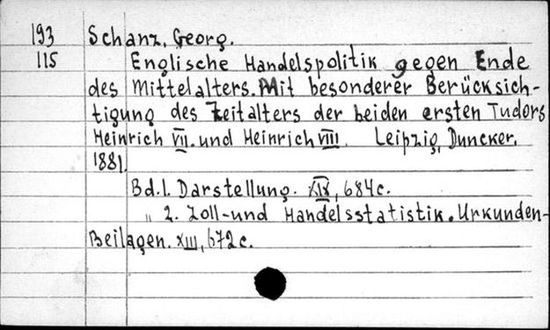 193 Schanz, Georg.
115 Englische Handelspolitik gegen Ende
des Mittelalters. Mit besonderer Berücksich-
tigung des Zeitalters der beiden ersten Tudors
Heinrich VII. und Heinrich VIII. Leipzig, Duncker.
1881.
Bd. 1. Darstellung. XIX, 684 c.
" 2. Zoll- und Handelsstatistik. Urkunden-
Beilagen. XIII, 672 c.